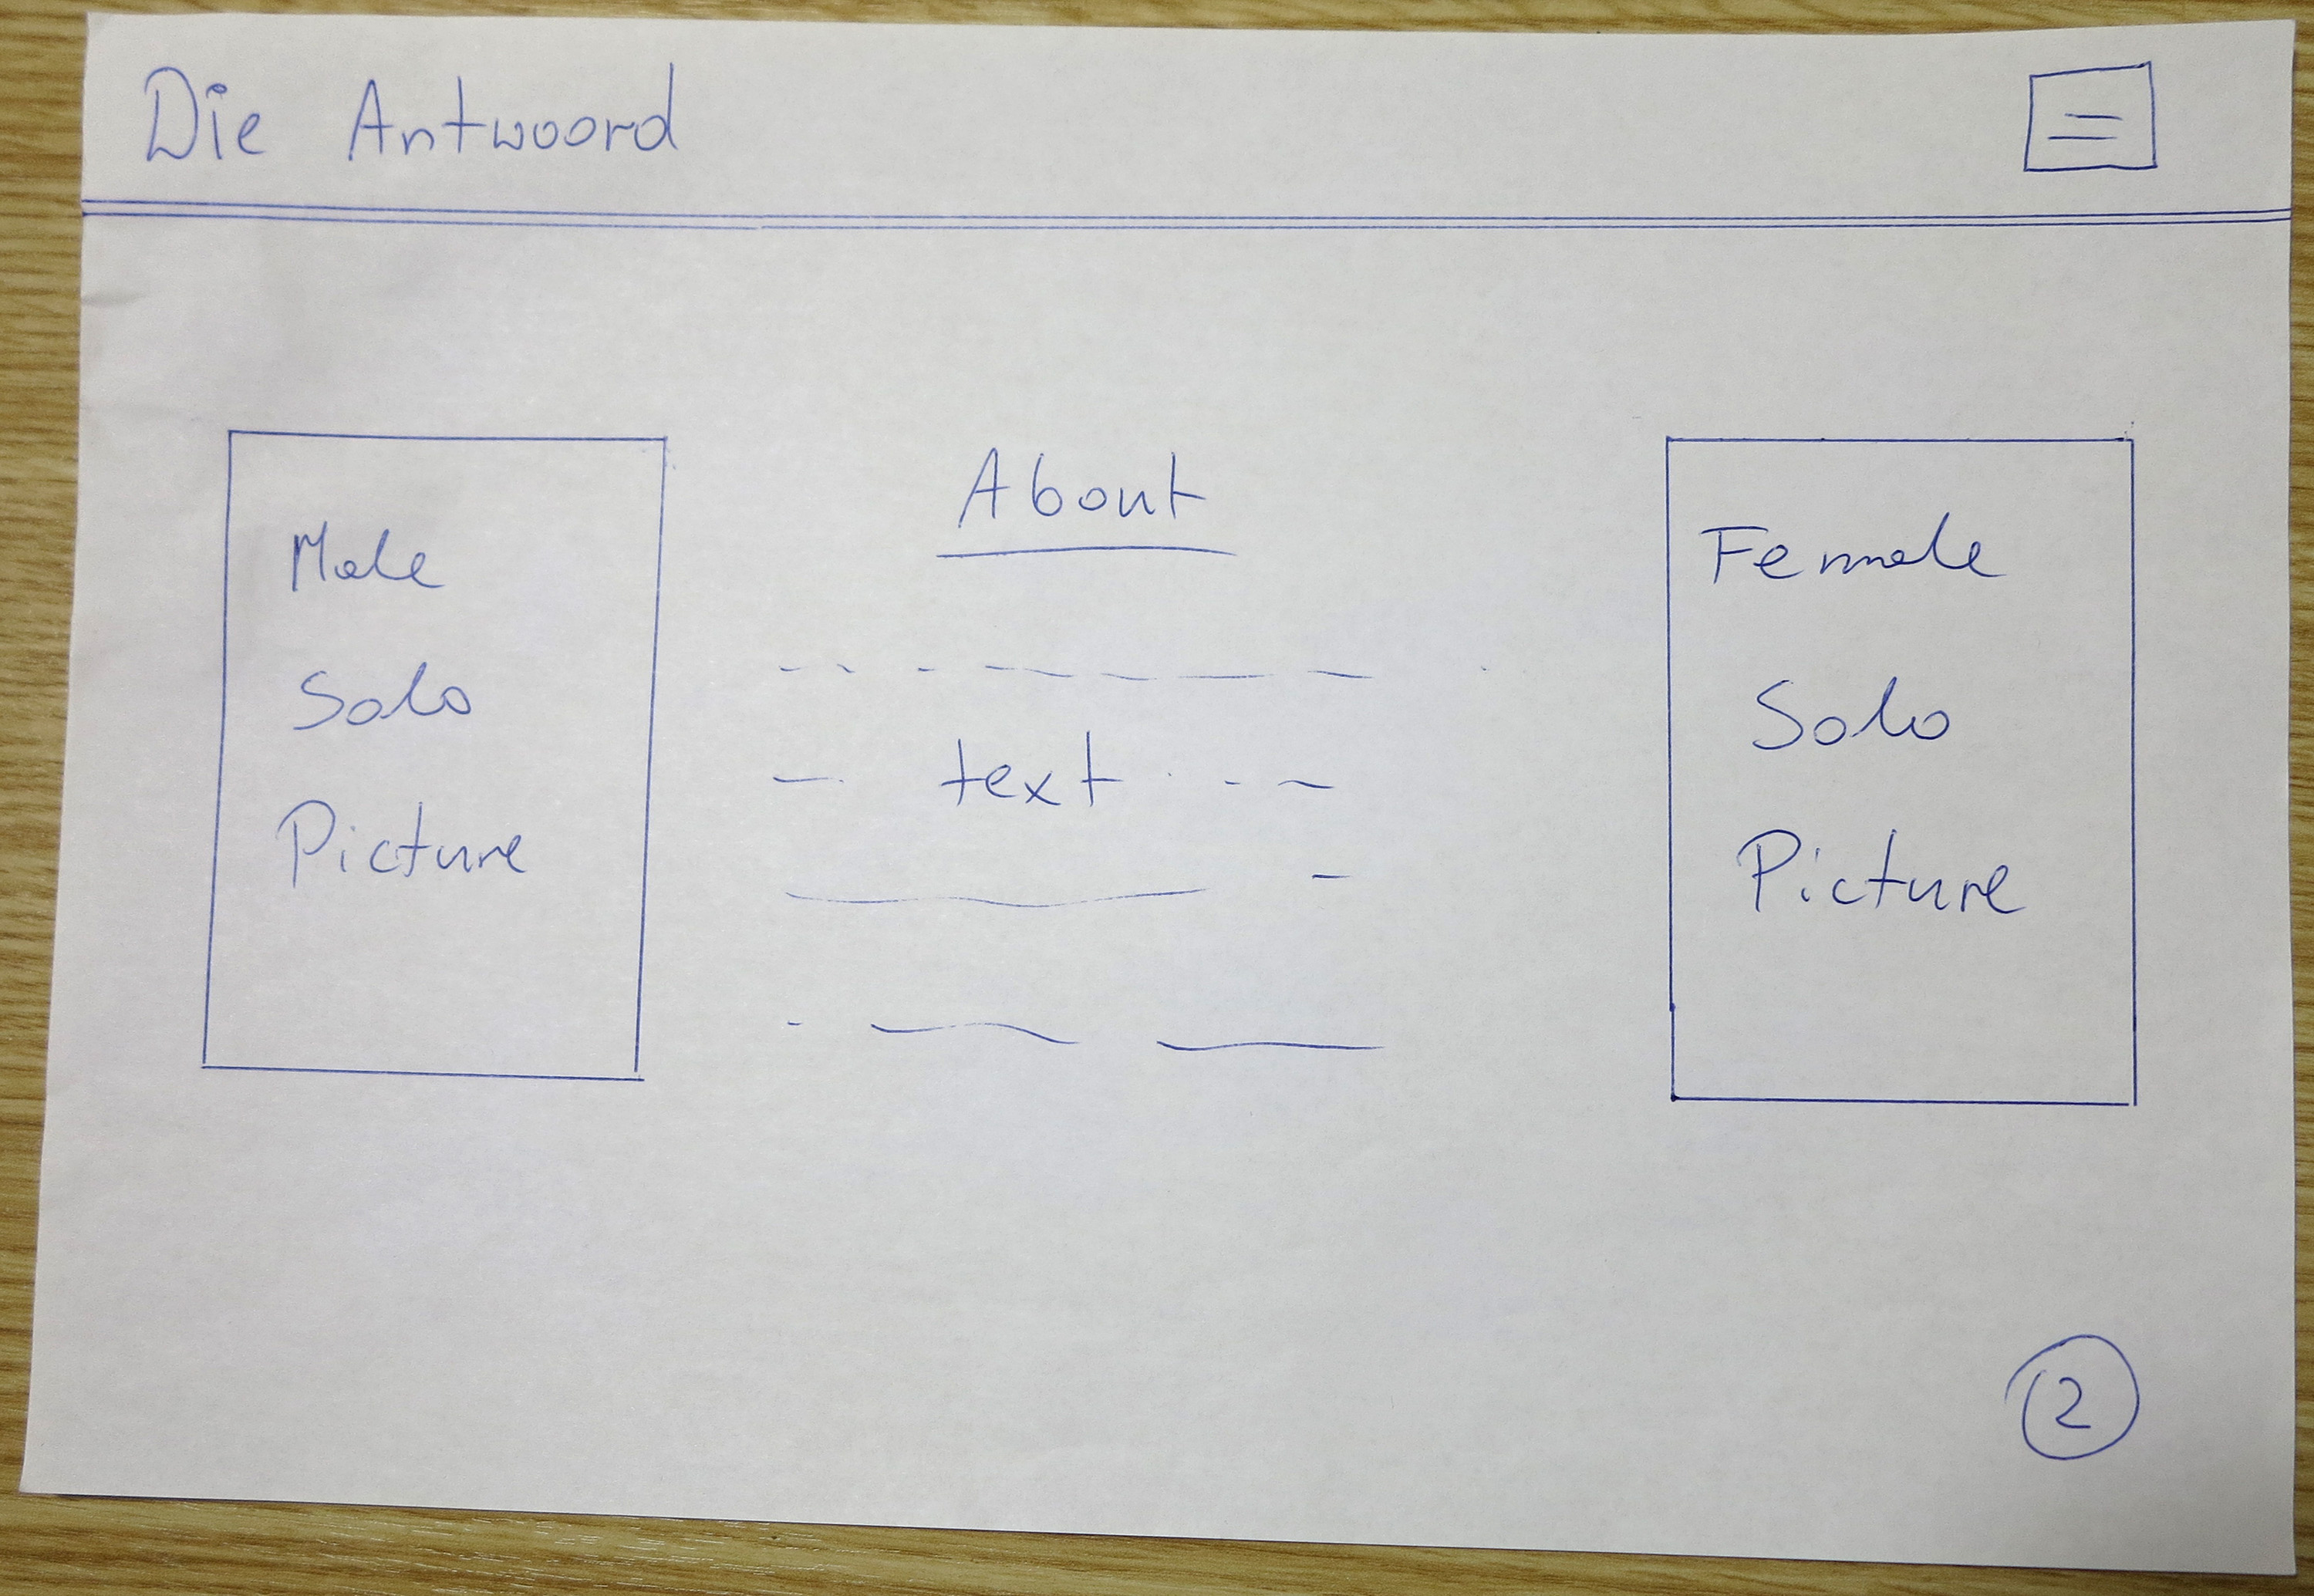 Die Antwoord
Male
Solo
Picture
About
text
Female
Solo
Picture
2